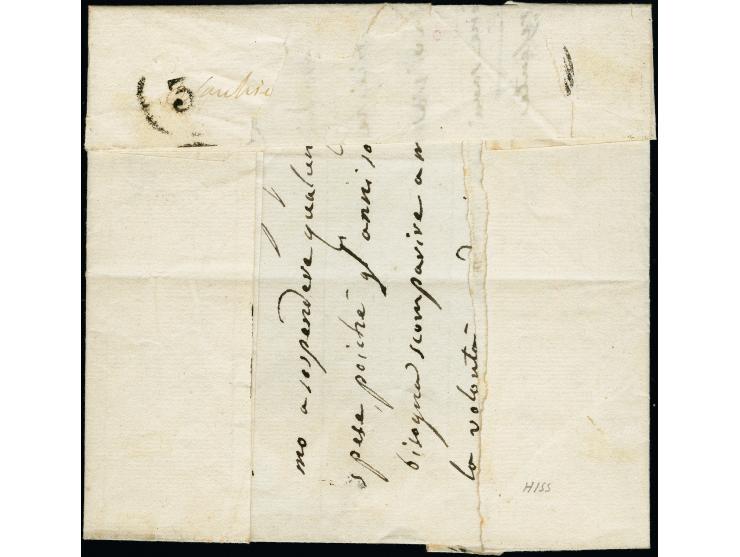 5
mo a sospendere qualun
spese, poichè gl'anni so
bisogna scomparire a m
la volontà
H155